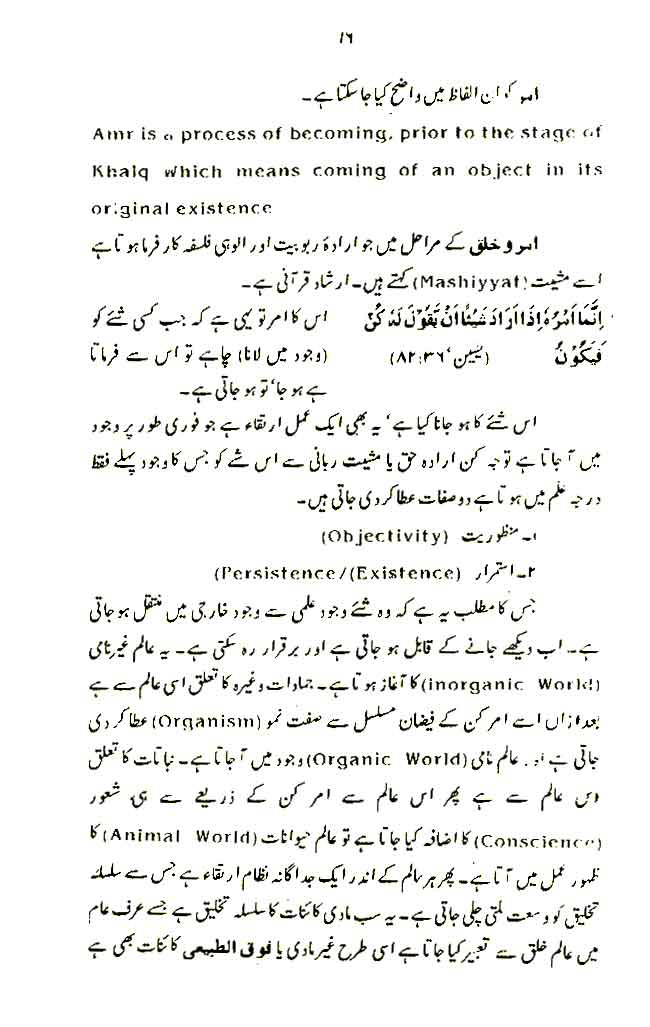 ۱۶
امر کو ان الفاظ میں واضح کیا جا سکتا ہے۔
Amr is a process of becoming, prior to the stage of
Khalq which means coming of an object in its
original existence
امر و خلق کے مراحل میں جو ارادۂ ربوبیت اور الوہی فلسفہ کار فرما ہوتا ہے
اسے مشیت (Mashiyyat) کہتے ہیں۔ ارشاد قرآنی ہے۔
اِنَّمَا اَمْرُهٗ اِذَا اَرَادَ شَيْئًا اَنْ يَّقُوْلَ لَهٗ كُنْ اس کا امر تو یہی ہے کہ جب کسی شئے کو
فَيَكُوْنُ (یٰسین‘ ۳۶:۸۲) (وجود میں لانا) چاہے تو اس سے فرماتا
ہے ہو جا‘ تو ہو جاتی ہے۔
اس شئے کا ہو جانا کیا ہے‘ یہ بھی ایک عمل ارتقاء ہے جو فوری طور پر وجود
میں آ جاتا ہے توجہ کن ارادہ حق یا مشیت ربانی سے اس شے کو جس کا وجود پہلے فقط
درجہ علم میں ہوتا ہے دو صفات عطا کر دی جاتی ہیں۔
۱۔ منظوریت (Objectivity)
۲۔ استمرار (Persistence/(Existence)
جس کا مطلب یہ ہے کہ وہ شئے وجود علمی سے وجود خارجی میں منتقل ہو جاتی
ہے۔ اب دیکھے جانے کے قابل ہو جاتی ہے اور برقرار رہ سکتی ہے۔ یہ عالم غیر نامی
(inorganic World) کا آغاز ہوتا ہے۔ جمادات وغیرہ کا تعلق اسی عالم سے ہے
بعد ازاں اسے امر کن کے فیضان مسلسل سے صفت نمو (Organism) عطا کر دی
جاتی ہے اور عالم نامی (Organic World) وجود میں آ جاتا ہے۔ نباتات کا تعلق
اس عالم سے ہے پھر اس عالم سے امر کن کے ذریعے سے ہی شعور
(Conscience) کا اضافہ کیا جاتا ہے تو عالم حیوانات (Animal World) کا
ظہور عمل میں آتا ہے۔ پھر ہر عالم کے اندر ایک جداگانہ نظام ارتقاء ہے جس سے سلسلہ
تخلیق کو وسعت ملتی چلی جاتی ہے۔ یہ سب مادی کائنات کا سلسلہ تخلیق ہے جسے عرف عام
میں عالم خلق سے تعبیر کیا جاتا ہے اسی طرح غیر مادی یا فوق الطبیعی کائنات بھی ہے